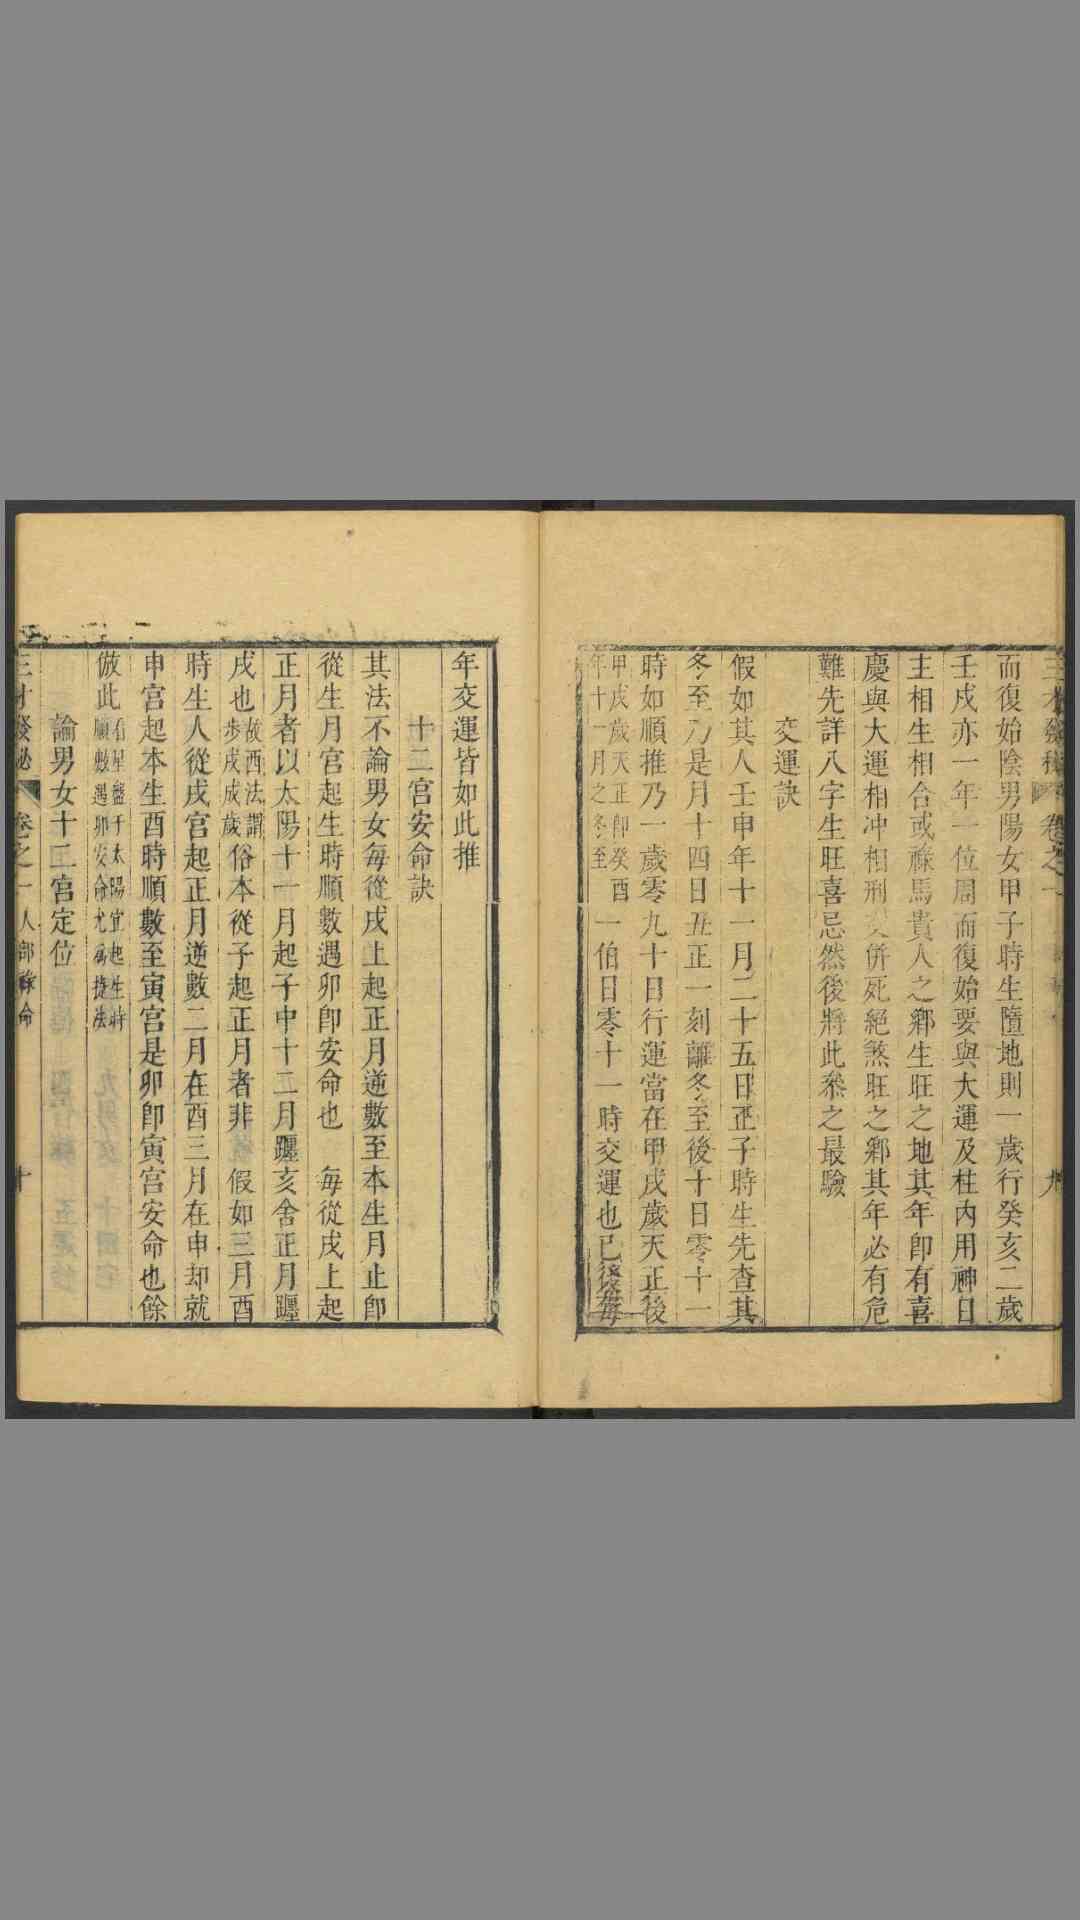 三才發秘 卷之一 九
而復始陰男陽女甲子時生墮地則一歲行癸亥二歲
壬戌亦一年一位周而復始要與大運及柱內用神日
主相生相合或祿馬貴人之鄉生旺之地其年卽有喜
慶與大運相冲相刑 併死絕煞旺之鄉其年必有危
難先詳八字生旺喜忌然後將此叅之最驗
交運訣
假如其人壬申年十一月二十五日正子時生先查其
冬至乃是月十四日丑正一刻離冬至後十日零十一
時如順推乃一歲零九十日行運當在甲戌歲天正後
甲戌歲天正卽癸酉
年十一月之冬至
一伯日零十一時交運也已後每
年交運皆如此推
十二宮安命訣
其法不論男女每從戌上起正月逆數至本生月止卽
從生月宮起生時順數遇卯卽安命也 每從戌上起
正月者以太陽十一月起子中十二月躔亥舍正月躔
戌也
故西法謂
步戌成歲
俗本從子起正月者非 假如三月酉
時生人從戌宮起正月逆數二月在酉三月在申却就
申宮起本生酉時順數至寅宮是卯卽寅宮安命也餘
倣此
看星盤于太陽宜起生時
順數遇卯安命尤爲捷法
論男女十二宮定位
三才發秘 卷之一 人部祿命 十